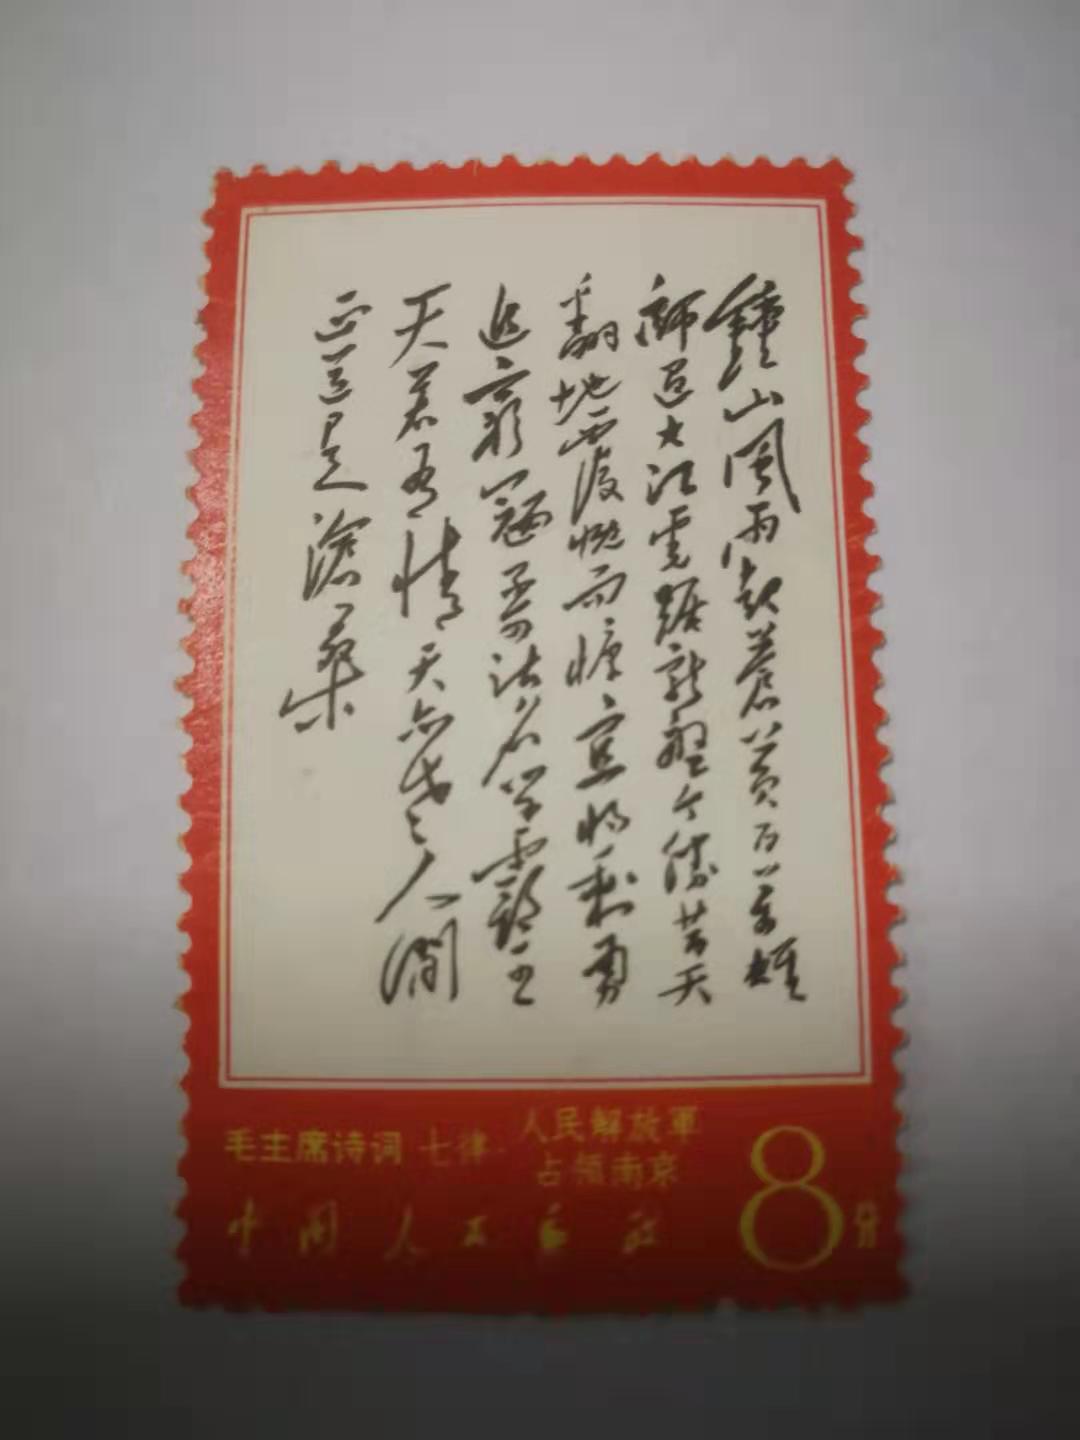 鐘山風雨起蒼黃百万雄
師過大江虎踞龍盤今勝昔天
翻地覆慨而慷宜將剩勇
追窮寇不可沽名學霸王
天若有情天亦老人間
正道是滄桑
毛主席诗词 七律·人民解放軍
占领南京
中国人民邮政
8分